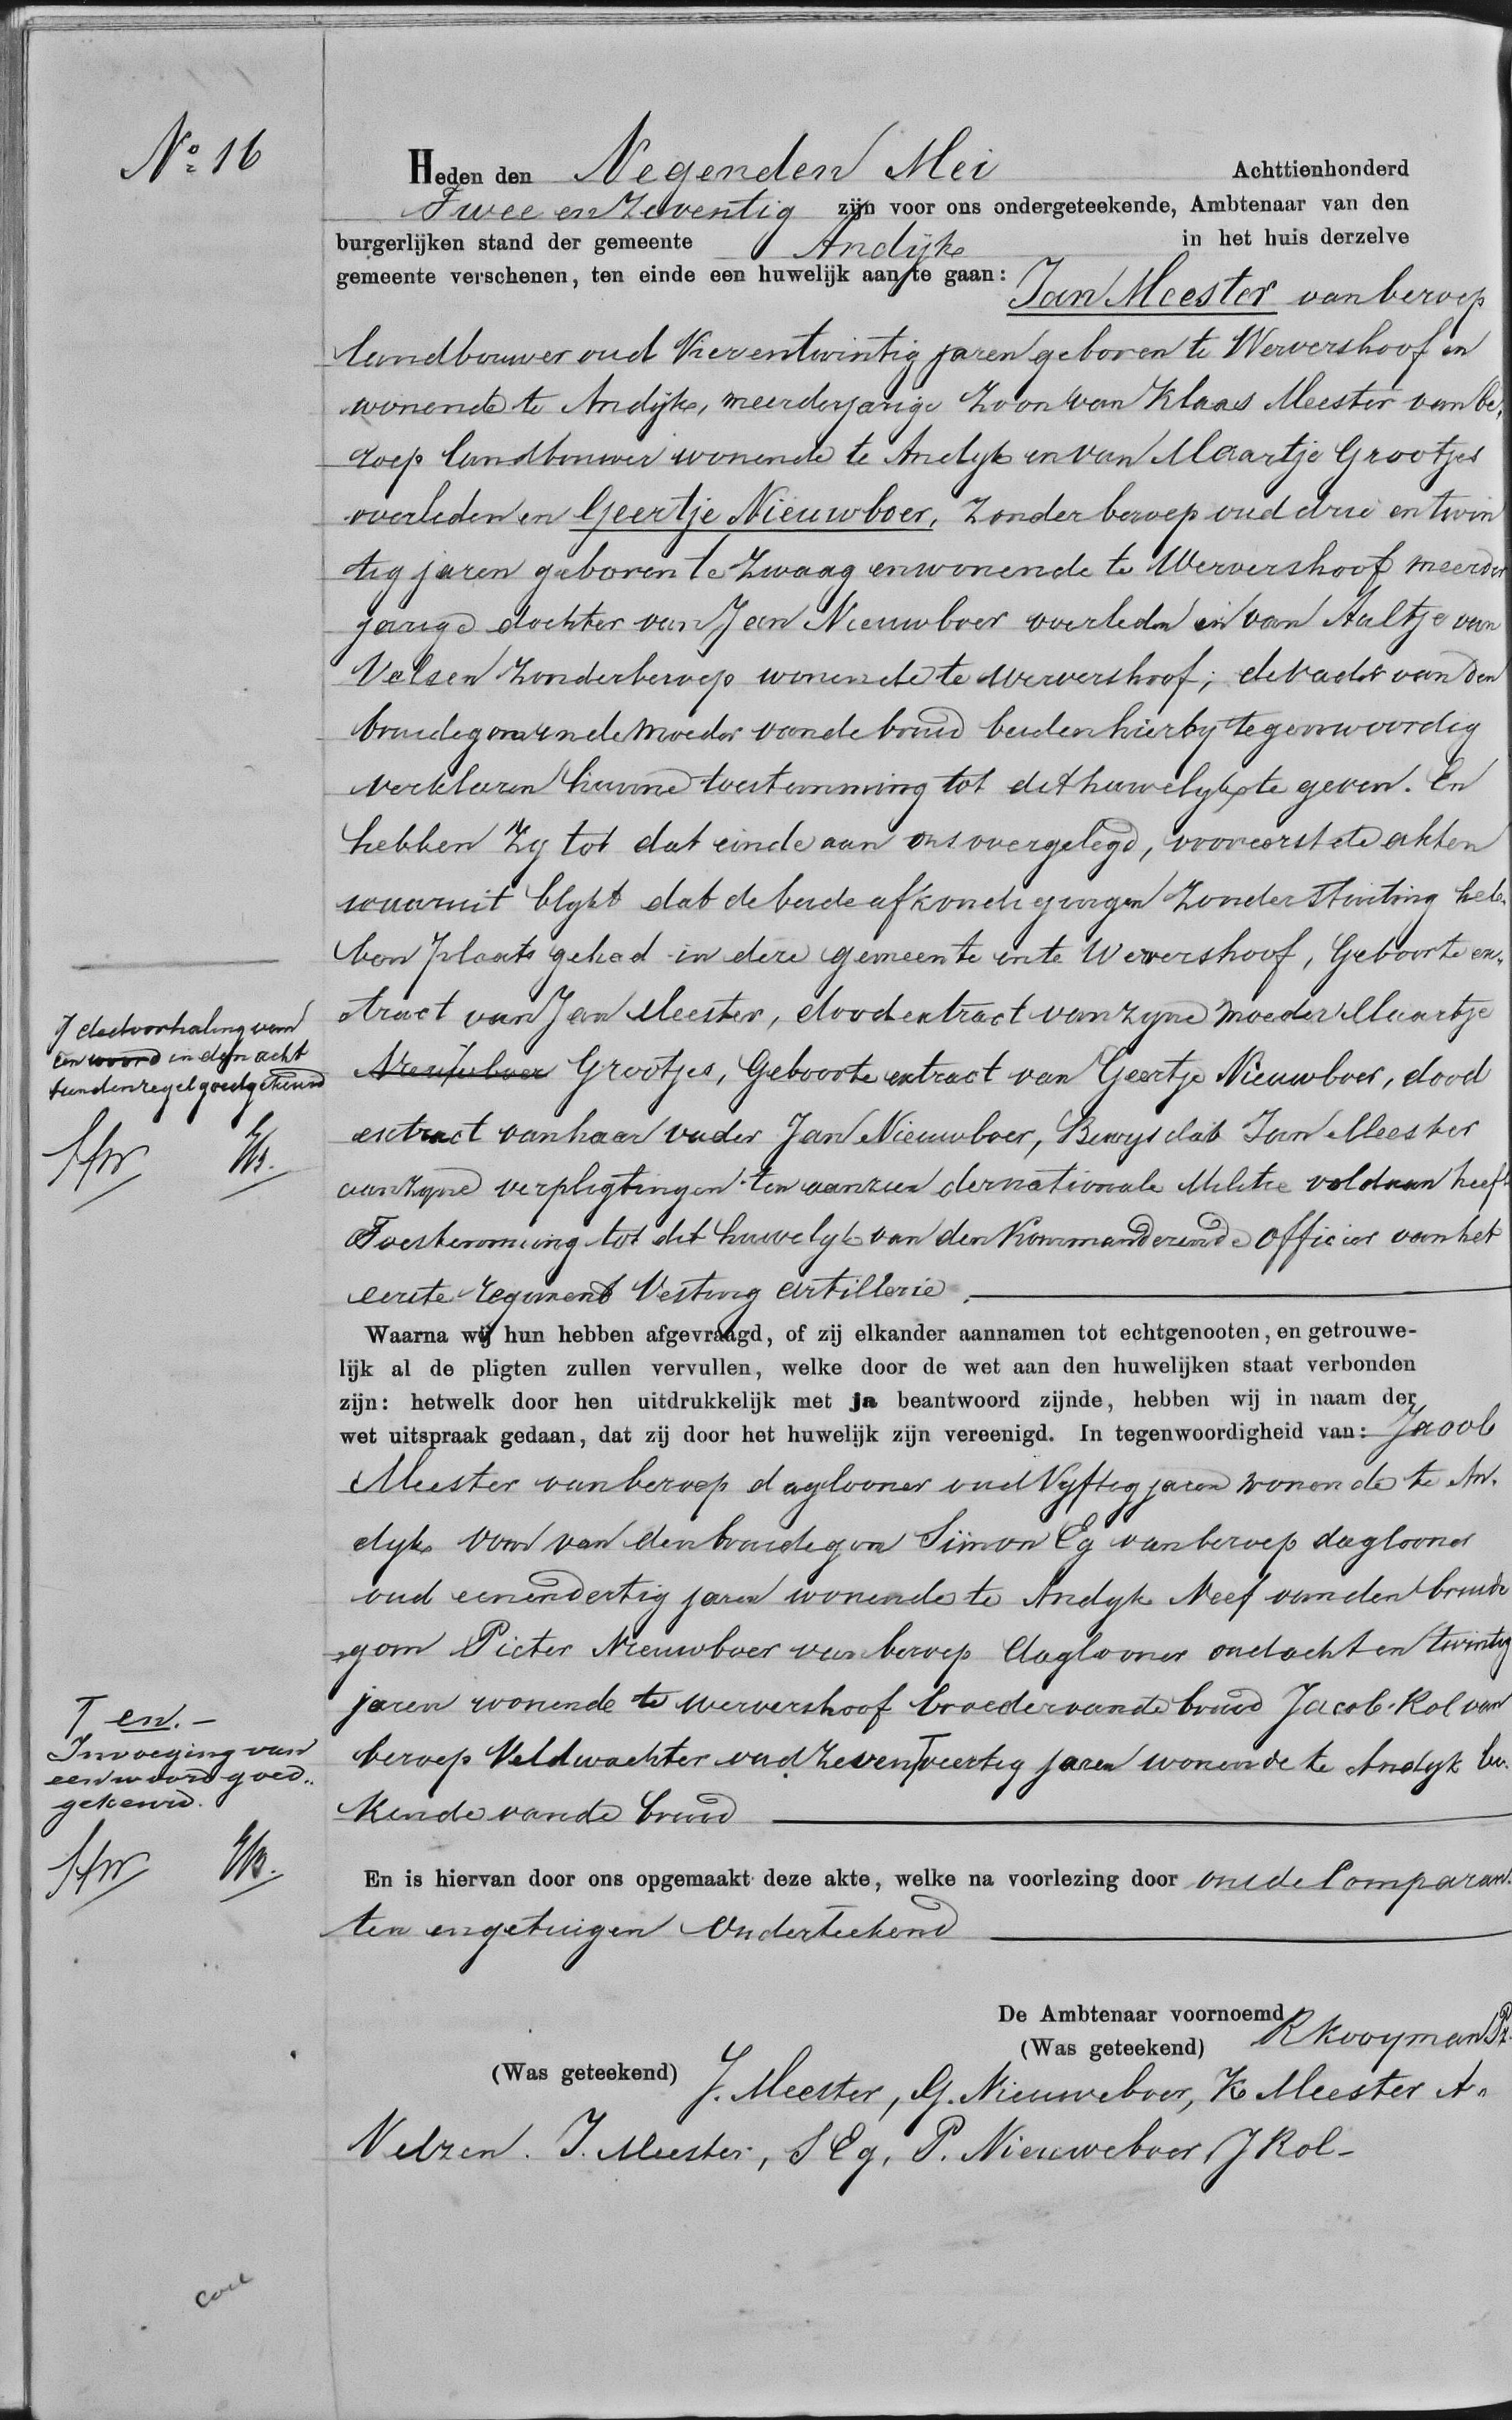 No 16
Heden den Negenden Mei Achttienhonderd
Twee en Zeventig zijn voor ons ondergeteekende, Ambtenaar van den
burgerlijken stand der gemeente Andijk in het huis derzelve
gemeente verschenen, ten einde een huwelijk aan te gaan: Jan Meester van beroep
landbouwer oud Vierentwintig jaren geboren te Wervershoof en
wonende te Andijk, meerderjarige Zoon van Klaas Meester van be,
roep landbouwer wonende te Andyk en van Maartje Grootjes
overleden en Geertje Nieuwboer, Zonder beroep oud drie en twin
tig jaren geboren te Zwaag en wonende te Wervershoof meerder
jarige dochter van Jan Nieuwboer overleden en van Aaltje van
Velsen Zonder beroep wonende te Wervershoof; de vader van den
bruidegom en de moeder van de bruid beiden hierby tegenwoordig
verklaren hunne toestemming tot dit huwelyk te geven. En
hebben Zy tot dat einde aan ons overgelegd, vooreerst de akten
waaruit blykt dat de beide afkondigingen Zonder Stuiting heb-
ben plaats gehad in deze gemeente en te Wervershoof, Geboorte ex-
tract van Jan Meester, doodextract van zyne moeder Maartje
Nieuwboer Grootjes, Geboorte extract van Geertje Nieuwboer, dood
extract van haar vader Jan Nieuwboer, Bewys dat Jan Meester
aan zyne verpligtingen ten aanzien der nationale Militie voldaan heeft
Toestemming tot dit huwelyk van den Kommanderende Officier van het
eerste regiment Vesting artillerie.
J deelvorhaling van
een woord in den acht
tienden regel goedgekeurd
Waarna wij hun hebben afgevraagd, of zij elkander aannamen tot echtgenooten, en getrouwe-
lijk al de pligten zullen vervullen, welke door de wet aan den huwelijken staat verbonden
zijn: hetwelk door hen uitdrukkelijk met ja beantwoord zijnde, hebben wij in naam der
wet uitspraak gedaan, dat zij door het huwelijk zijn vereenigd. In tegenwoordigheid van: Jacob
Meester van beroep daglooner oud Vyftig jaren wonende te An-
dyk oom van den bruidegom Simon Eg van beroep daglooner
oud eenendertig jaren wonende te Andyk Neef van den bruide
gom Pieter Nieuwboer van beroep daglooner oud acht en twintig
jaren wonende te Wervershoof broeder van de bruid Jacob Kol van
beroep Veldwachter oud Zeven T veertig jaren wonende te Andyk be-
kende van de bruid
T en. -
Invoeging van
een woord goed..
gekeurd.
En is hiervan door ons opgemaakt deze akte, welke na voorlezing door ons de Comparan-
ten en getuigen Onderteekend
De Ambtenaar voornoemd
(Was geteekend) R Kooyman Pz.
(Was geteekend) J. Meester, G. Nieuweboer, K Meester A.
Velzen. J. Meester, S Eg, P. Nieuweboer, J Kol-